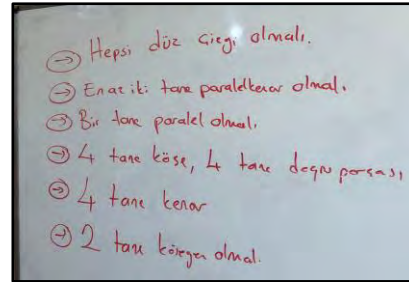 → Hepsi düz çizgi olmalı.
→ En az iki tane paralelkenar olmalı.
→ Bir tane paralel olmalı.
→ 4 tane köşe, 4 tane doğru parçası,
→ 4 tane kenar
→ 2 tane köşegen olmalı.